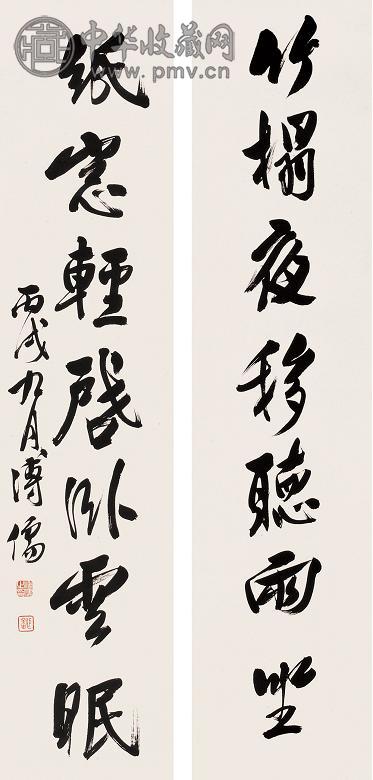 中华收藏网
www.pmv.cn
竹榻夜移聽雨坐
紙窗輕啓臥雲眠
丙戌九月溥儒